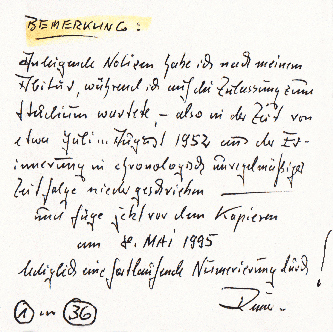 BEMERKUNG:
Anliegende Notizen habe ich nach meinem
Abitur, während ich auf die Zulassung zum
Studium wartete, – also in der Zeit von
etwa Juli ... August 1952 aus der Er-
innerung in chronologisch unregelmäßiger
Zeitfolge niedergeschrieben
und füge jetzt vor dem Kopieren
am 8. MAI 1995
lediglich eine fortlaufende Numerierung durch!
1 von 36